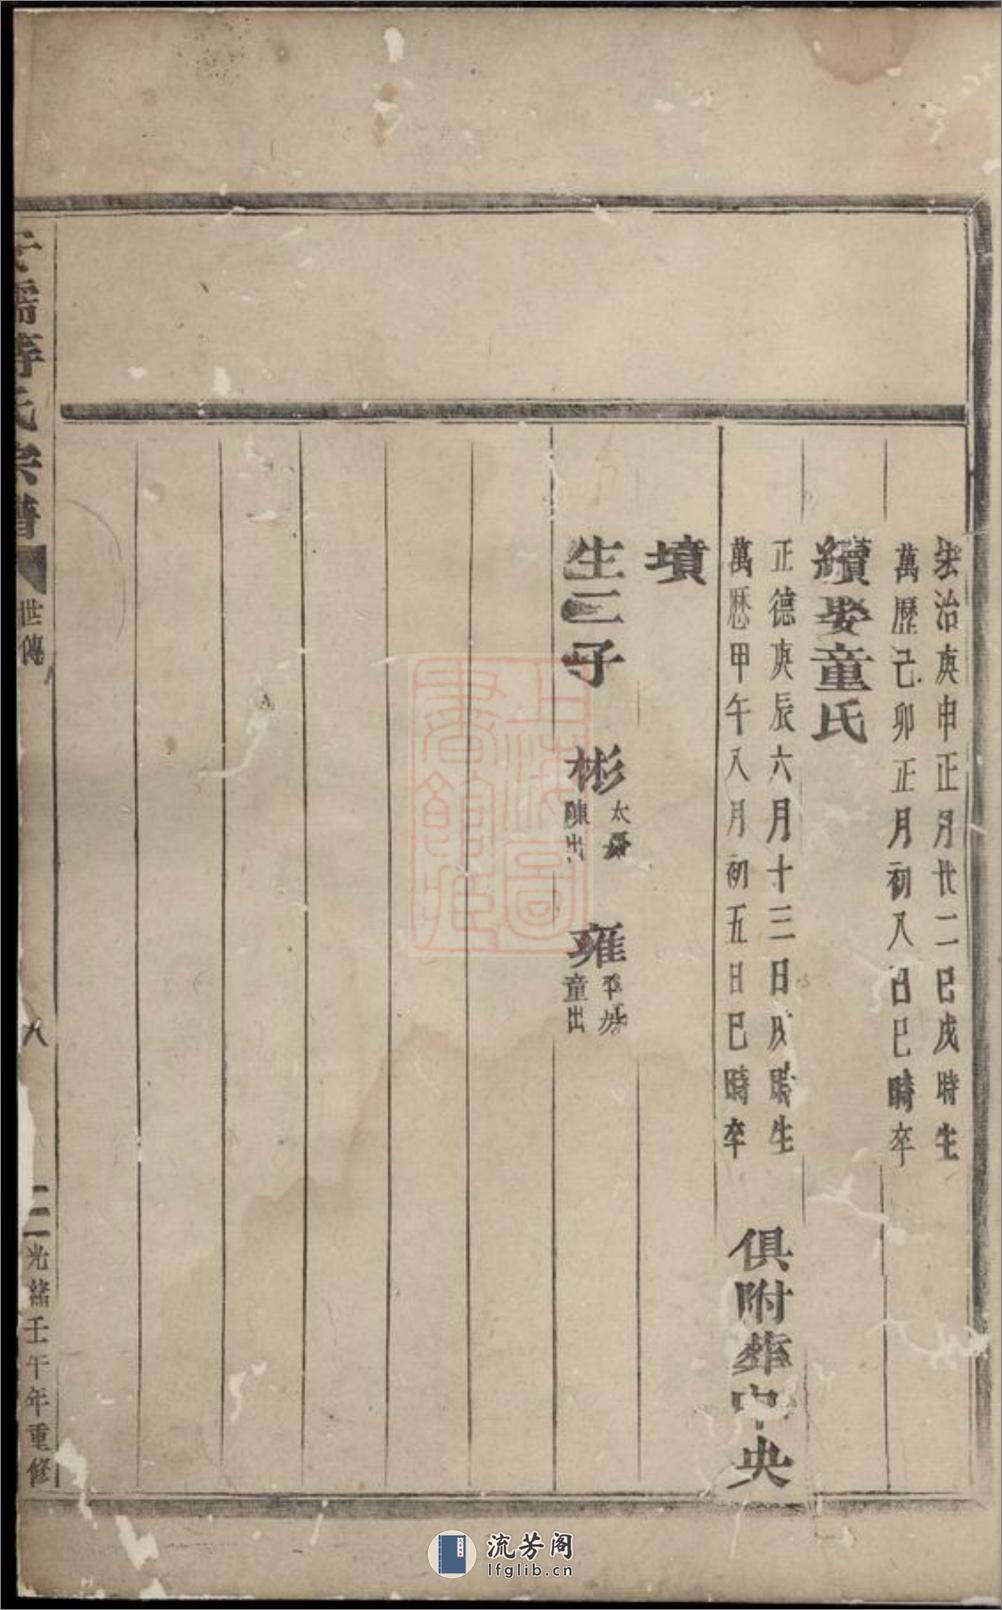 治庚申正月廿二巳戌時生
萬歷己卯正月初八日巳時卒
續娶童氏
正德庚辰六月十三日戌時生
萬歷甲午八月初五日巳時卒
俱附葬中央
墳
生二子
彬
太
陳出
雍
童出
氏宗譜
世傳
八
光緒壬午年重修
上海圖書館藏
流芳阁
lfglib.cn